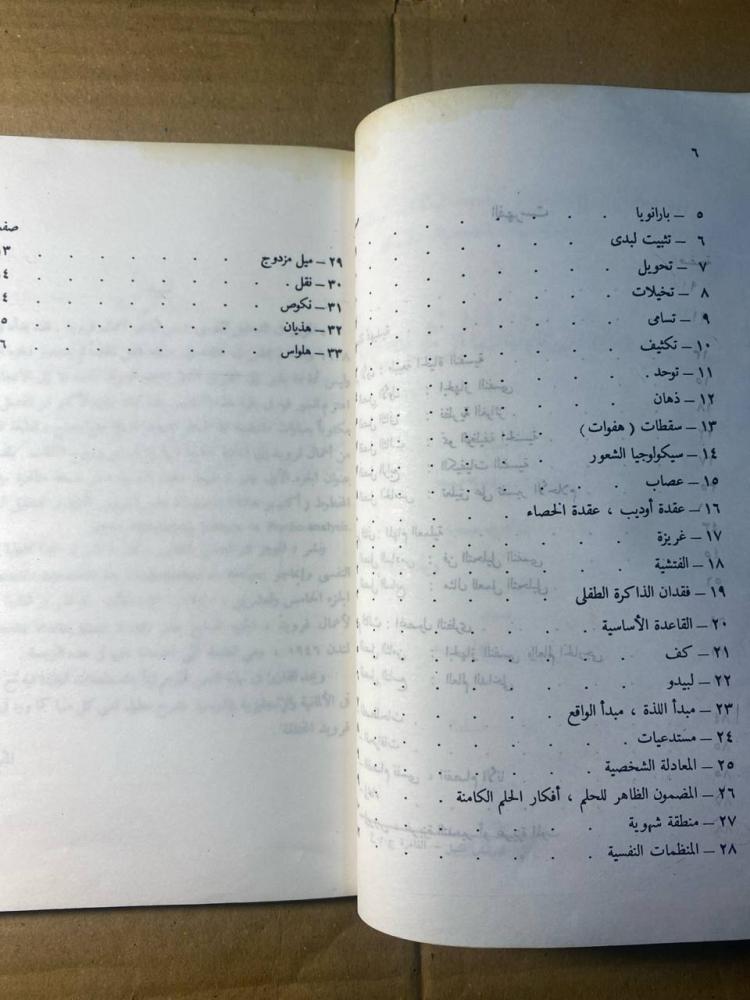 ٦
٥ – بارانويا
٦ – تثبيت لبدى
٧ – تحويل
٨ – تخيلات
٩ – تسامى
١٠ – تكثيف
١١ – توحد
١٢ – ذهان
١٣ – سقطات ( هفوات )
١٤ – سيكولوجيا الشعور
١٥ – عصاب
١٦ – عقدة أوديب ، عقدة الخصاء
١٧ – غريزة
١٨ – الفتشية
١٩ – فقدان الذاكرة الطفلى
٢٠ – القاعدة الأساسية
٢١ – كف
٢٢ – لبيدو
٢٣ – مبدأ اللذة ، مبدأ الواقع
٢٤ – مستدعيات
٢٥ – المعادلة الشخصية
٢٦ – المضمون الظاهر للحلم ، أفكار الحلم الكامنة
٢٧ – منطقة شهوية
٢٨ – المنظمات النفسية
٢٩ – ميل مزدوج
٣٠ – نقل
٣١ – نكوص
٣٢ – هذيان
٣٣ – هلواس